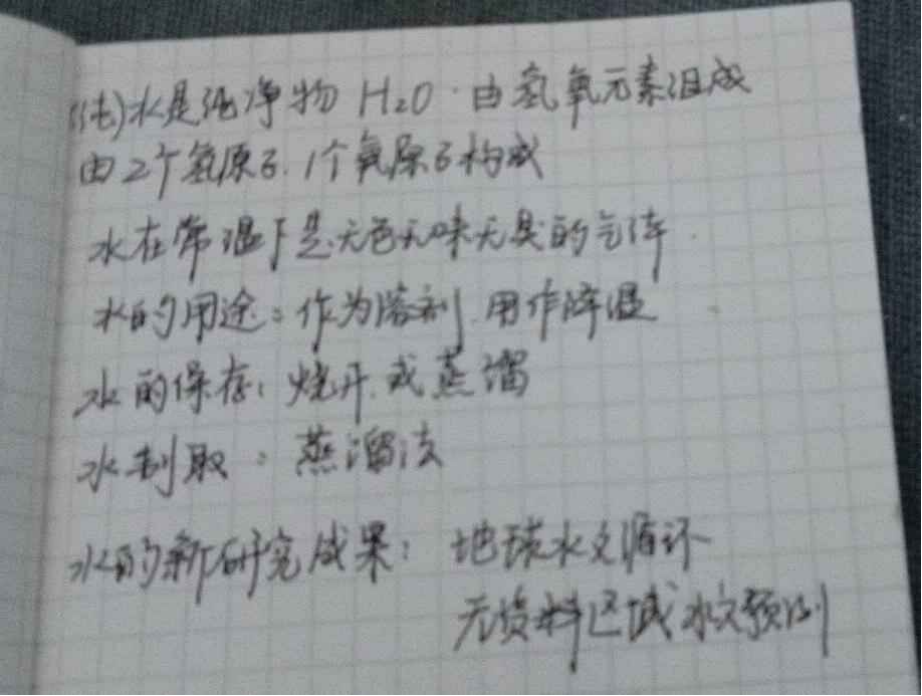 (纯)水是纯净物 H₂O·由氢氧元素组成
由2个氢原子.1个氧原子构成
水在常温下是无色无味无臭的气体.
水的用途:作为溶剂.用作降温
水的保存:烧开.或蒸馏
水制取:蒸溜法
水的新研究成果:地球水文循环
无资料区域水文预测